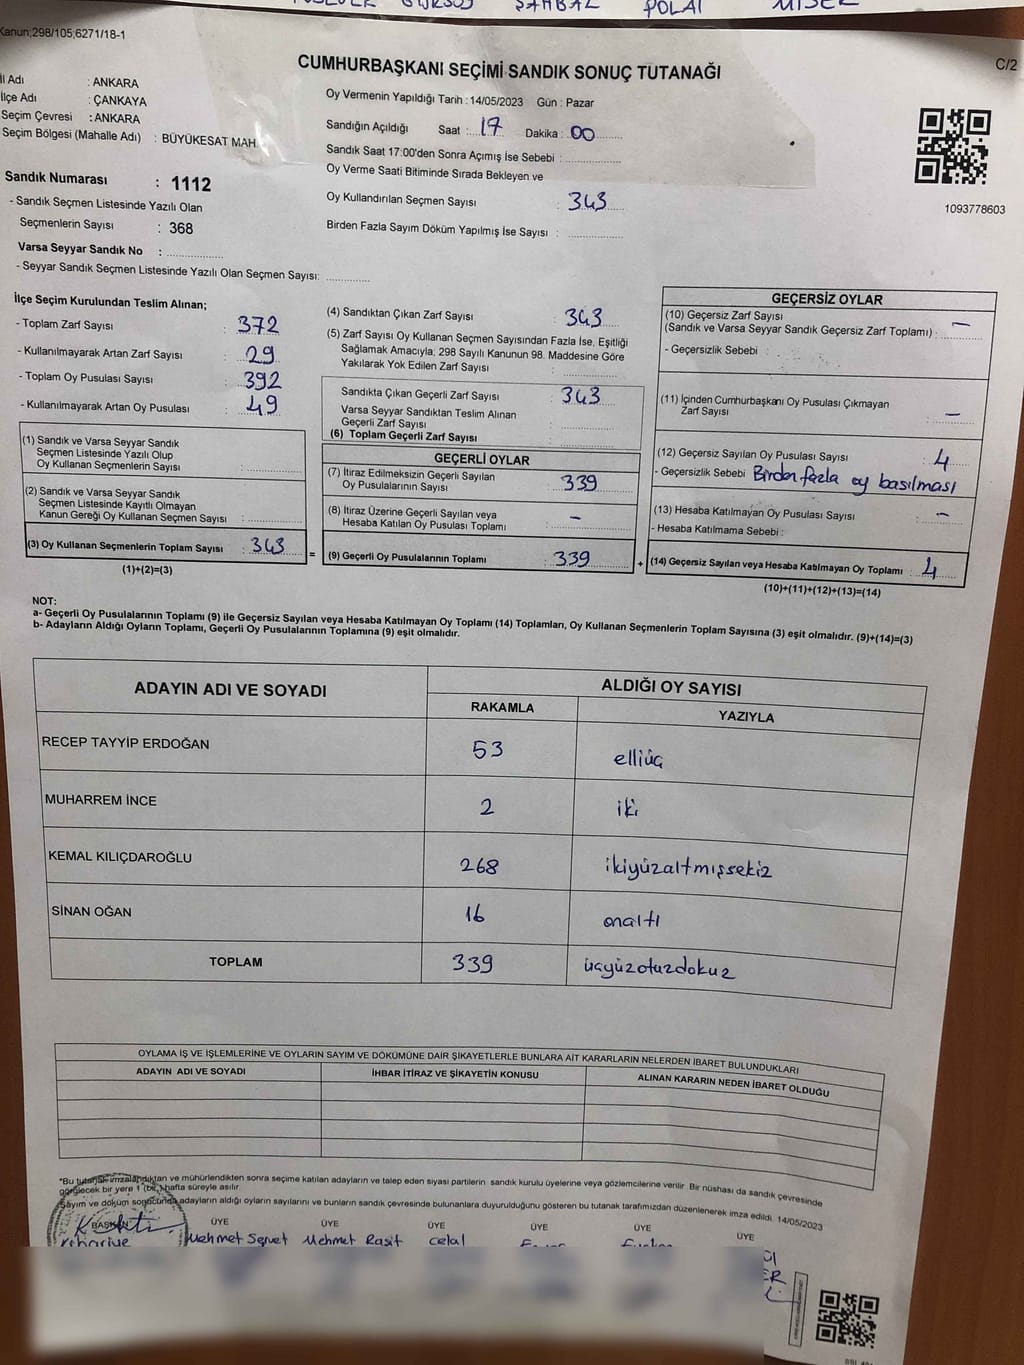 Kanun;298/105;6271/18-1
C/2
CUMHURBAŞKANI SEÇİMİ SANDIK SONUÇ TUTANAĞI
İl Adı : ANKARA
İlçe Adı : ÇANKAYA
Seçim Çevresi : ANKARA
Seçim Bölgesi (Mahalle Adı) : BÜYÜKESAT MAH.
Oy Vermenin Yapıldığı Tarih : 14/05/2023 Gün : Pazar
Sandığın Açıldığı Saat : 17 Dakika : 00
Sandık Saat 17:00'den Sonra Açımış İse Sebebi :
Oy Verme Saati Bitiminde Sırada Bekleyen ve
Oy Kullandırılan Seçmen Sayısı : 343
Birden Fazla Sayım Döküm Yapılmış İse Sayısı :
1093778603
Sandık Numarası : 1112
- Sandık Seçmen Listesinde Yazılı Olan
Seçmenlerin Sayısı : 368
Varsa Seyyar Sandık No :
- Seyyar Sandık Seçmen Listesinde Yazılı Olan Seçmen Sayısı:
İlçe Seçim Kurulundan Teslim Alınan;
- Toplam Zarf Sayısı : 372
- Kullanılmayarak Artan Zarf Sayısı : 29
- Toplam Oy Pusulası Sayısı : 392
- Kullanılmayarak Artan Oy Pusulası : 49
(1) Sandık ve Varsa Seyyar Sandık
Seçmen Listesinde Yazılı Olup
Oy Kullanan Seçmenlerin Sayısı :
(2) Sandık ve Varsa Seyyar Sandık
Seçmen Listesinde Kayıtlı Olmayan
Kanun Gereği Oy Kullanan Seçmen Sayısı :
(3) Oy Kullanan Seçmenlerin Toplam Sayısı : 343
(1)+(2)=(3)
(4) Sandıktan Çıkan Zarf Sayısı : 343
(5) Zarf Sayısı Oy Kullanan Seçmen Sayısından Fazla İse, Eşitliği
Sağlamak Amacıyla; 298 Sayılı Kanunun 98. Maddesine Göre
Yakılarak Yok Edilen Zarf Sayısı :
Sandıkta Çıkan Geçerli Zarf Sayısı : 343
Varsa Seyyar Sandıktan Teslim Alınan
Geçerli Zarf Sayısı :
(6) Toplam Geçerli Zarf Sayısı :
GEÇERLİ OYLAR
(7) İtiraz Edilmeksizin Geçerli Sayılan
Oy Pusulalarının Sayısı : 339
(8) İtiraz Üzerine Geçerli Sayılan veya
Hesaba Katılan Oy Pusulası Toplamı : -
= (9) Geçerli Oy Pusulalarının Toplamı : 339 +
GEÇERSİZ OYLAR
(10) Geçersiz Zarf Sayısı
(Sandık ve Varsa Seyyar Sandık Geçersiz Zarf Toplamı) : -
- Geçersizlik Sebebi :
(11) İçinden Cumhurbaşkanı Oy Pusulası Çıkmayan
Zarf Sayısı : -
(12) Geçersiz Sayılan Oy Pusulası Sayısı : 4
- Geçersizlik Sebebi Birden fazla oy basılması
(13) Hesaba Katılmayan Oy Pusulası Sayısı : -
- Hesaba Katılmama Sebebi :
(14) Geçersiz Sayılan veya Hesaba Katılmayan Oy Toplamı : 4
(10)+(11)+(12)+(13)=(14)
NOT:
a- Geçerli Oy Pusulalarının Toplamı (9) ile Geçersiz Sayılan veya Hesaba Katılmayan Oy Toplamı (14) Toplamları, Oy Kullanan Seçmenlerin Toplam Sayısına (3) eşit olmalıdır. (9)+(14)=(3)
b- Adayların Aldığı Oyların Toplamı, Geçerli Oy Pusulalarının Toplamına (9) eşit olmalıdır.
ADAYIN ADI VE SOYADI ALDIĞI OY SAYISI
RAKAMLA YAZIYLA
RECEP TAYYİP ERDOĞAN 53 elliüç
MUHARREM İNCE 2 iki
KEMAL KILIÇDAROĞLU 268 ikiyüzaltmışsekiz
SİNAN OĞAN 16 onaltı
TOPLAM 339 üçyüzotuzdokuz
OYLAMA İŞ VE İŞLEMLERİNE VE OYLARIN SAYIM VE DÖKÜMÜNE DAİR ŞİKAYETLERLE BUNLARA AİT KARARLARIN NELERDEN İBARET BULUNDUKLARI
ADAYIN ADI VE SOYADI İHBAR İTİRAZ VE ŞİKAYETİN KONUSU ALINAN KARARIN NEDEN İBARET OLDUĞU
*Bu tutanak imzalandıktan ve mühürlendikten sonra seçime katılan adayların ve talep eden siyasi partilerin sandık kurulu üyelerine veya gözlemcilerine verilir. Bir nüshası da sandık çevresinde
görülecek bir yere 1 (bir) hafta süreyle asılır.
Sayım ve döküm sonucunda adayların aldığı oyların sayılarını ve bunların sandık çevresinde bulunanlara duyurulduğunu gösteren bu tutanak tarafımızdan düzenlenerek imza edildi. 14/05/2023
BAŞKAN ÜYE ÜYE ÜYE ÜYE ÜYE ÜYE
Mehmet Servet Mehmet Raşit Celal